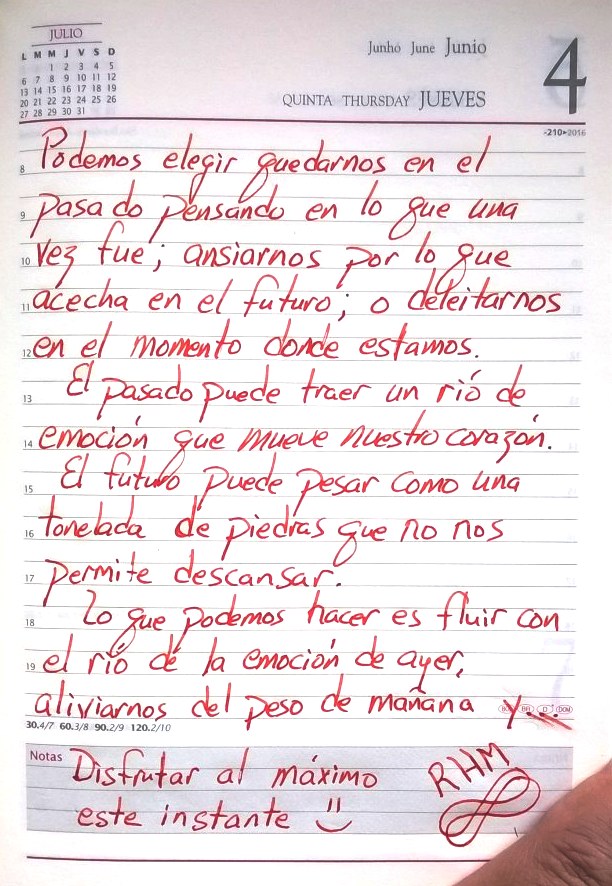 JULIO
L M M J V S D
1 2 3 4 5
6 7 8 9 10 11 12
13 14 15 16 17 18 19
20 21 22 23 24 25 26
27 28 29 30 31
Junho June Junio
4
QUINTA THURSDAY JUEVES
-210▸2016
8 Podemos elegir quedarnos en el
9 pasado pensando en lo que una
10 vez fue; ansiarnos por lo que
11 acecha en el futuro; o deleitarnos
12 en el momento donde estamos.
13 El pasado puede traer un rió de
14 emoción que mueve nuestro corazón.
15 El futuro puede pesar como una
16 tonelada de piedras que no nos
17 permite descansar.
18 Lo que podemos hacer es fluir con
19 el rió dé la emoción de ayer,
aliviarnos del peso de mañana y...
30.4/7 60.3/8 90.2/9 120.2/10
Notas Disfrutar al máximo
este instante
RHM